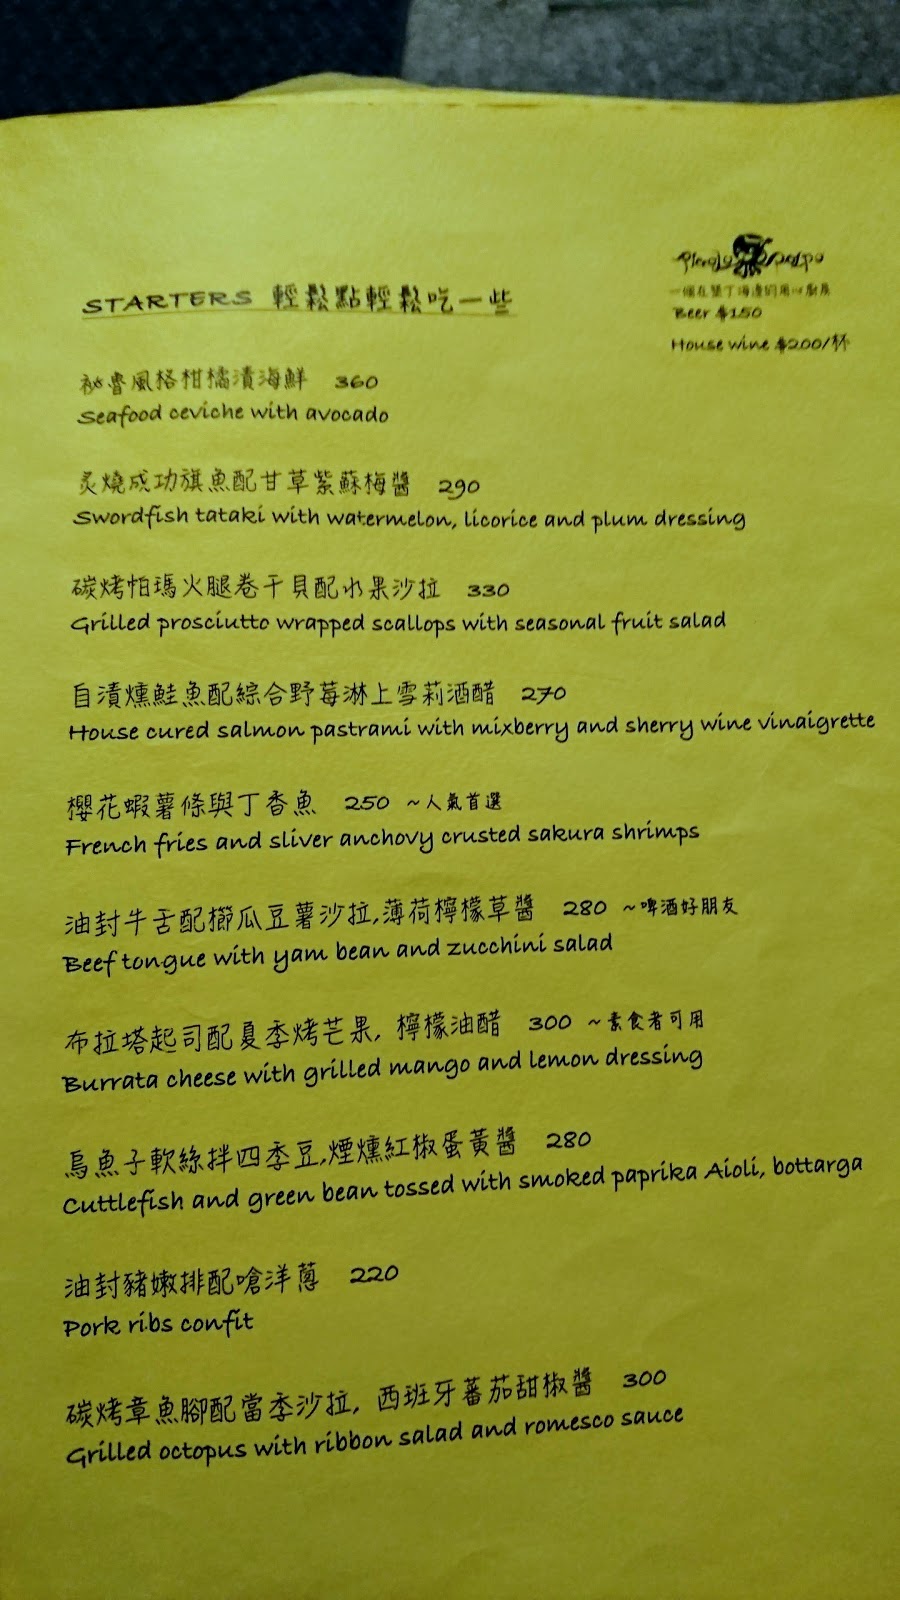 一個在墾丁海邊的用心廚房
Beer $150
House wine $200/杯
STARTERS 輕鬆點輕鬆吃一些
祕魯風格柑橘漬海鮮 360
Seafood ceviche with avocado
炙燒成功旗魚配甘草紫蘇梅醬 290
Swordfish tataki with watermelon, licorice and plum dressing
碳烤怕瑪火腿卷干貝配水果沙拉 330
Grilled prosciutto wrapped scallops with seasonal fruit salad
自漬燻鮭魚配綜合野莓淋上雪莉酒醋 270
House cured salmon pastrami with mixberry and sherry wine vinaigrette
櫻花蝦薯條與丁香魚 250 ~人氣首選
French fries and sliver anchovy crusted sakura shrimps
油封牛舌配櫛瓜豆薯沙拉,薄荷檸檬草醬 280 ~啤酒好朋友
Beef tongue with yam bean and zucchini salad
布拉塔起司配夏季烤芒果, 檸檬油醋 300 ~素食者可用
Burrata cheese with grilled mango and lemon dressing
烏魚子軟絲拌四季豆,煙燻紅椒蛋黃醬 280
Cuttlefish and green bean tossed with smoked paprika Aioli, bottarga
油封豬嫩排配嗆洋蔥 220
Pork ribs confit
碳烤章魚腳配當季沙拉, 西班牙蕃茄甜椒醬 300
Grilled octopus with ribbon salad and romesco sauce